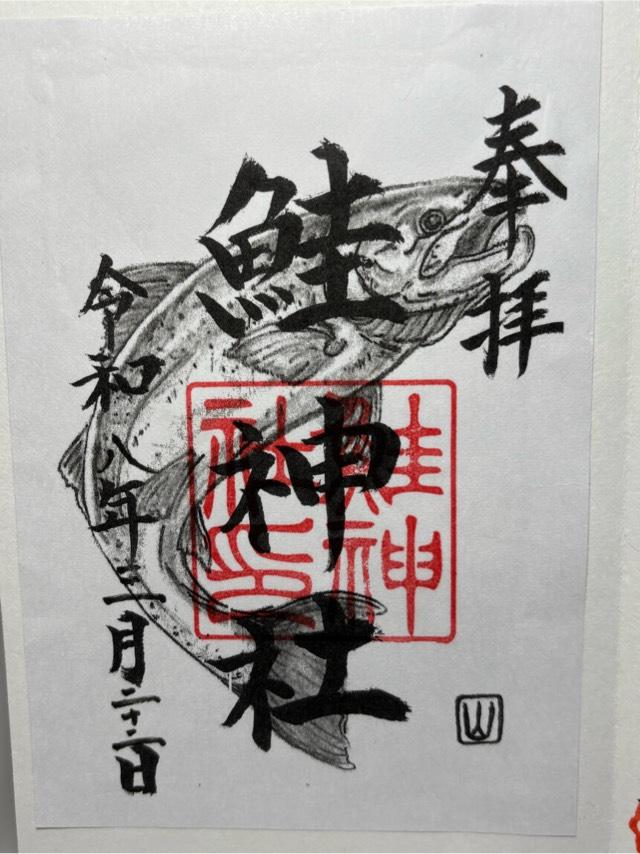 奉拝
鮭神社
鮭神
社印
令和八年三月二十二日